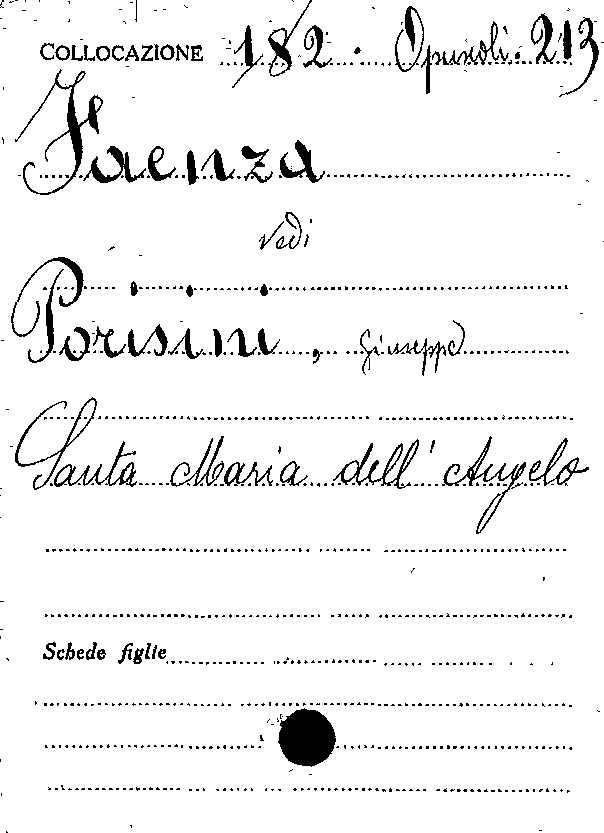 COLLOCAZIONE 182 · Opuscoli. 213
Faenza
vedi
Porisini, Giuseppe
Santa Maria dell' Angelo
Schede figlie